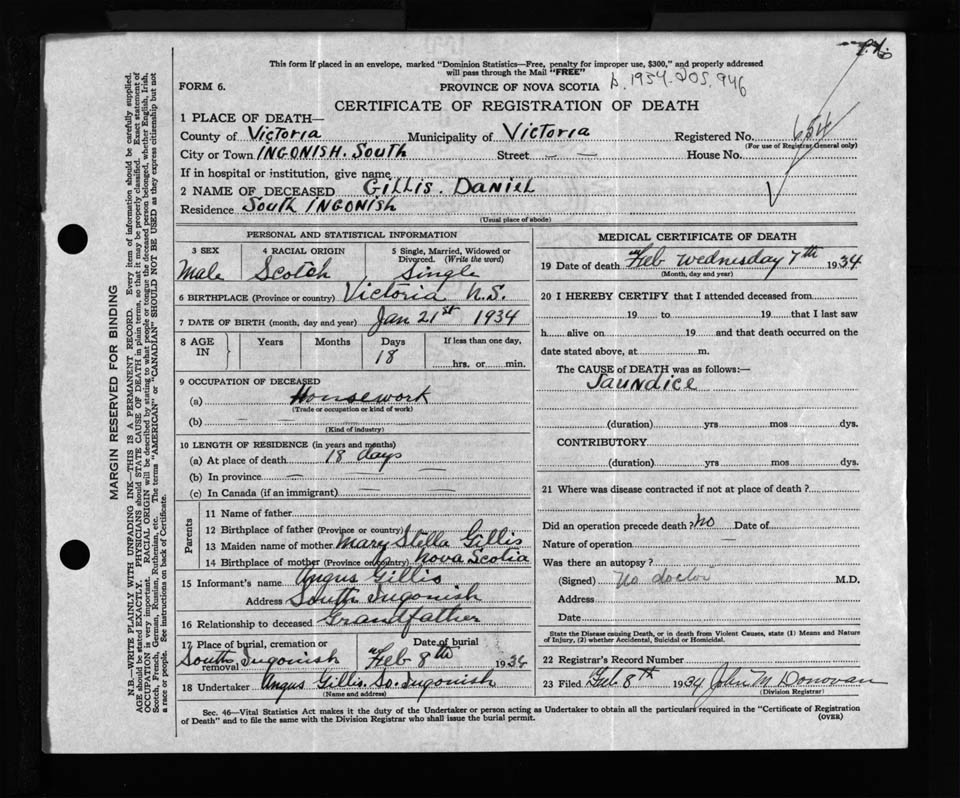 This form if placed in an envelope, marked "Dominion Statistics—Free, penalty for improper use, $300," and properly addressed
will pass through the Mail "FREE"
FORM 6.
PROVINCE OF NOVA SCOTIA
CERTIFICATE OF REGISTRATION OF DEATH
1 PLACE OF DEATH—
County of Victoria Municipality of Victoria Registered No. 654
(For use of Registrar General only)
City or Town INGONISH. South Street — — House No.
If in hospital or institution, give name
2 NAME OF DECEASED GILLIS. DANIEL
Residence South INGONISH
(Usual place of abode)
PERSONAL AND STATISTICAL INFORMATION
3 SEX 4 RACIAL ORIGIN 5 Single, Married, Widowed or
Divorced. (Write the word)
Male Scotch Single
6 BIRTHPLACE (Province or country) Victoria N.S.
7 DATE OF BIRTH (month, day and year) Jan 21st 1934
8 AGE IN Years Months Days If less than one day,
18 hrs. or min.
9 OCCUPATION OF DECEASED
(a) Housework
(Trade or occupation or kind of work)
(b) —
(Kind of industry)
10 LENGTH OF RESIDENCE (in years and months)
(a) At place of death 18 days
(b) In province — —
(c) In Canada (if an immigrant) — —
Parents
11 Name of father
12 Birthplace of father (Province or country)
13 Maiden name of mother Mary Stella Gillis
14 Birthplace of mother (Province or country) Nova Scotia
15 Informant's name Angus Gillis
Address South Ingonish
16 Relationship to deceased Grandfather
17 Place of burial, cremation or removal Date of burial
South Ingonish Feb 8th 1934
18 Undertaker Angus Gillis. So. Ingonish
(Name and address)
MEDICAL CERTIFICATE OF DEATH
19 Date of death Feb Wednesday 7th 1934
(Month, day and year)
20 I HEREBY CERTIFY that I attended deceased from
19 to 19 that I last saw
h alive on 19 and that death occurred on the
date stated above, at m.
The CAUSE of DEATH was as follows:—
Jaundice
(duration) yrs mos dys.
CONTRIBUTORY
(duration) yrs mos dys.
21 Where was disease contracted if not at place of death?
Did an operation precede death? No Date of
Nature of operation
Was there an autopsy?
(Signed) No doctor M.D.
Address
Date
State the Disease causing Death, or in death from Violent Causes, state (1) Means and Nature
of Injury, (2) whether Accidental, Suicidal or Homicidal.
22 Registrar's Record Number
23 Filed Feb 8th 1934 John M Donovan
(Division Registrar)
Sec. 46—Vital Statistics Act makes it the duty of the Undertaker or person acting as Undertaker to obtain all the particulars required in the "Certificate of Registration
of Death" and to file the same with the Division Registrar who shall issue the burial permit.
(OVER)
MARGIN RESERVED FOR BINDING
N.B.—WRITE PLAINLY WITH UNFADING INK—THIS IS A PERMANENT RECORD. Every item of information should be carefully supplied.
AGE should be stated EXACTLY. PHYSICIANS should STATE CAUSE OF DEATH in plain terms, so that it may be properly classified. Exact statement of
OCCUPATION is very important. RACIAL ORIGIN will be described by stating to what people or tongue the deceased person belonged, whether English, Irish,
Scotch, French, German, Russian, Ruthenian, etc. The terms "AMERICAN" or "CANADIAN" SHOULD NOT BE USED as they express citizenship but not
a race or people. See instructions on back of Certificate.